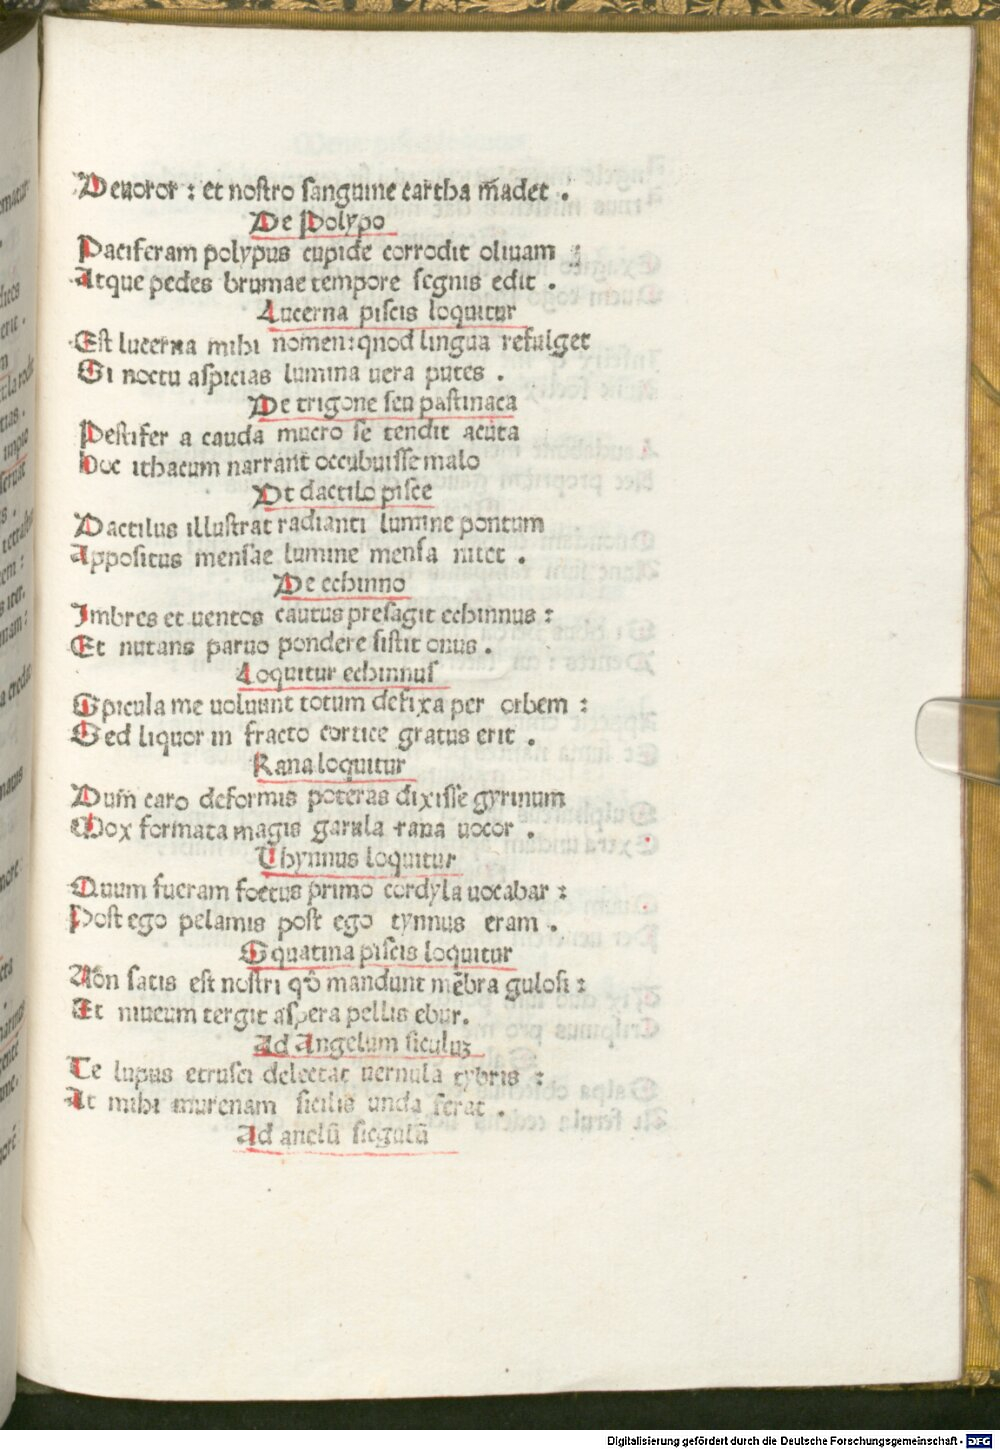 Deuoror : et nostro sanguine cartha m̄adet .
De Polypo
Paciferam polypus cupide corrodit oliuam :
Atque pedes brumae tempore segnis edit .
Lucerna piscis loquitur
Est lucerna mihi nomen: quod lingua refulget
Si noctu aspicias lumina uera putes .
De trigone seu pastinaca
Pestifer a cauda mucro se tendit acuta
Hoc ithacum narrant occubuisse malo
De dactilo pisce
Dactilus illustrat radianti lumine pontum
Appositus mensae lumine mensa nitet .
De echinno
Imbres et uentos cautus presagit echinnus :
Et nutans paruo pondere sistit onus .
Loquitur echinnus
Spicula me uoluunt totum defixa per orbem :
Sed liquor in fracto cortice gratus erit .
Rana loquitur
Dum caro deformis poteras dixisse gyrinum
Mox formata magis garula rana uocor .
Thynnus loquitur
Quum fueram foetus primo cordyla uocabar :
Post ego pelamis post ego tynnus eram .
Squatina piscis loquitur
Non satis est nostri qō mandunt mēbra gulosi :
Et niueum tergit aspera pellis ebur.
Ad Angelum siculuꝫ
Te lupus etrusci delectat uernula tybris :
At mihi murenam sicilis unda ferat .
Ad anelū sicgulū